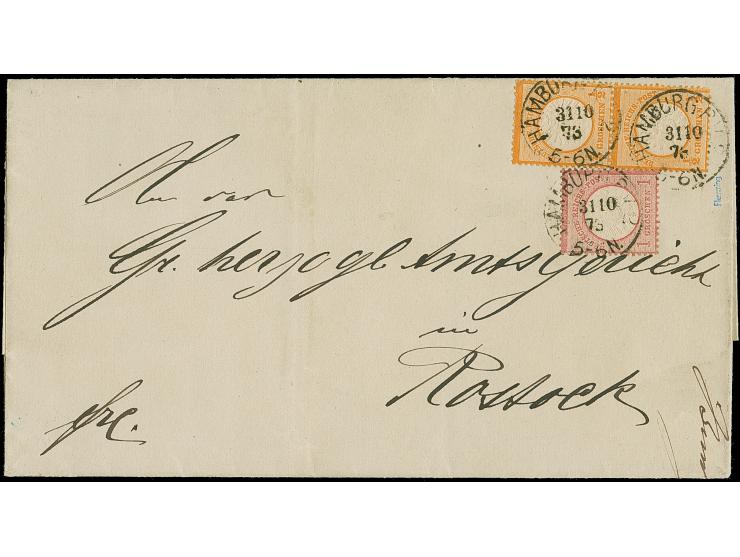 HAMBURG
31 10
73
5-6N.
HAMBURG
31 10
73
5-6N.
HAMBURG
31 10
73
5-6N.
GROSCHEN
1 GROSCHEN 1
Flemming
An das
Gr. herzogl Amtsgericht
in
Rostock
frc.